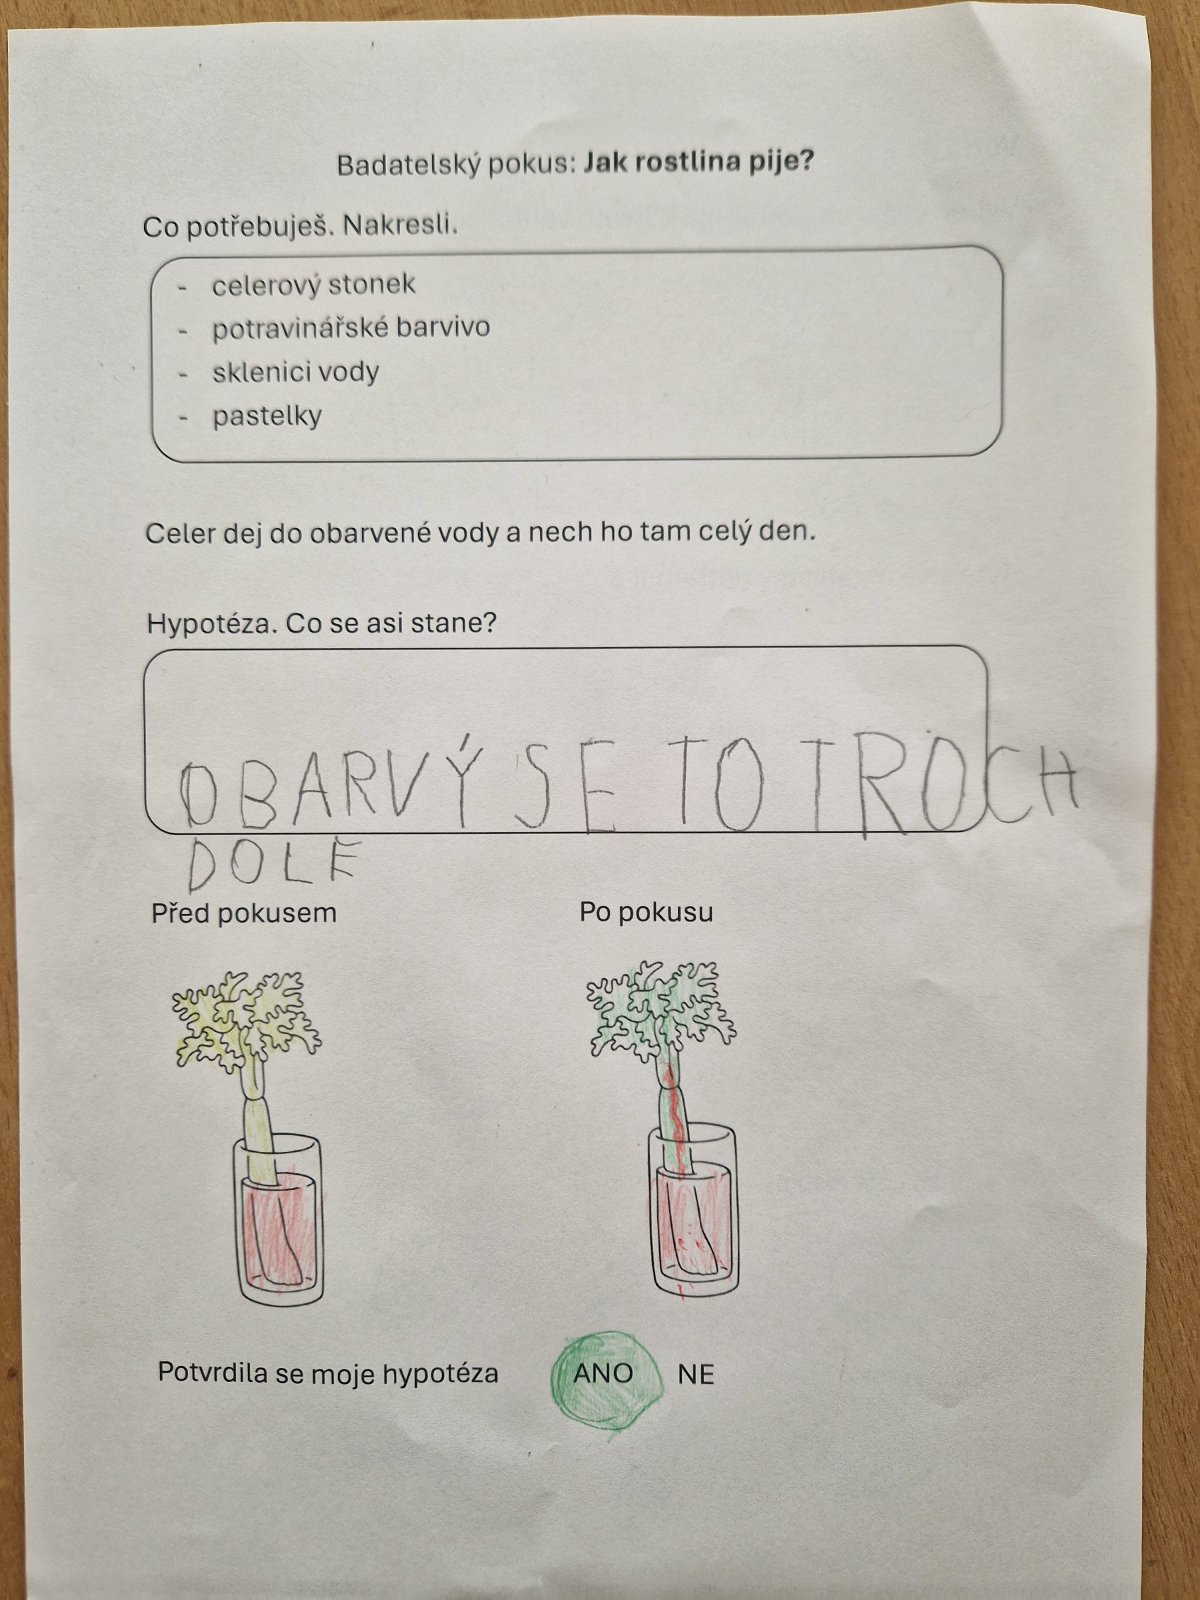 Badatelský pokus: Jak rostlina pije?
Co potřebuješ. Nakresli.
- celerový stonek
- potravinářské barvivo
- sklenici vody
- pastelky
Celer dej do obarvené vody a nech ho tam celý den.
Hypotéza. Co se asi stane?
OBARVÝ SE TO TROCH
DOLE
Před pokusem
Po pokusu
Potvrdila se moje hypotéza ANO NE